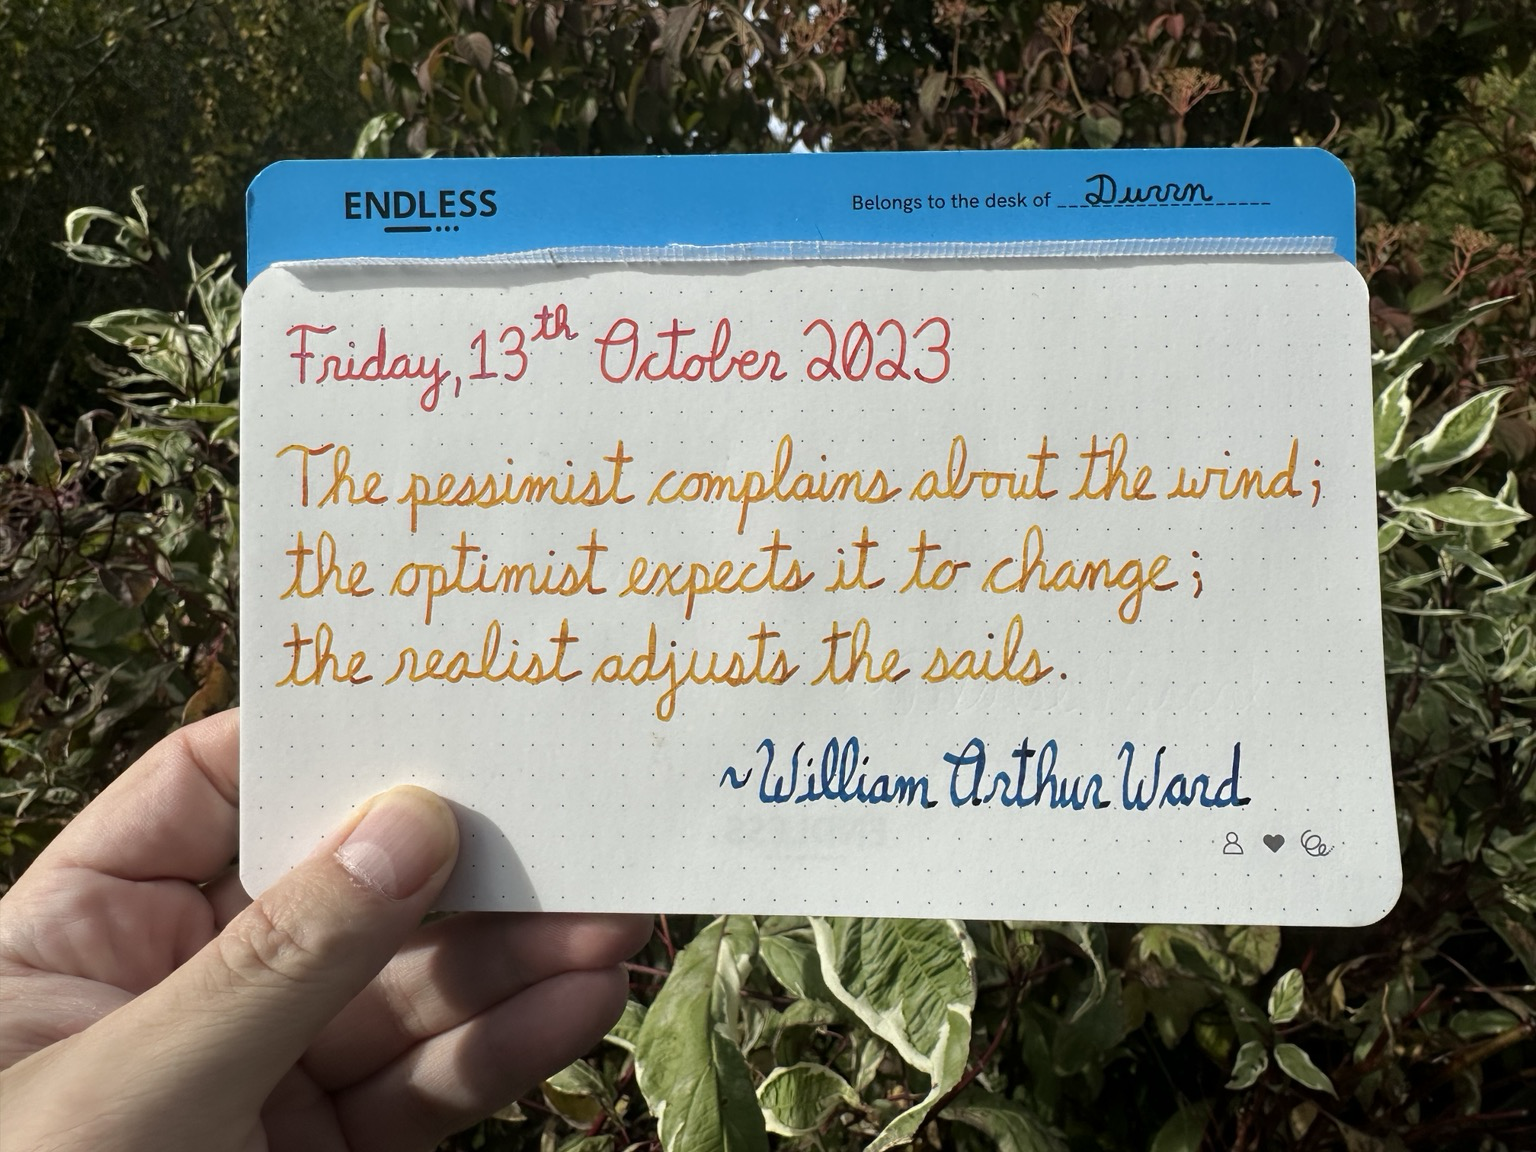 ENDLESS
Belongs to the desk of Durrn
Friday, 13th October 2023
The pessimist complains about the wind;
the optimist expects it to change;
the realist adjusts the sails.
~William Arthur Ward